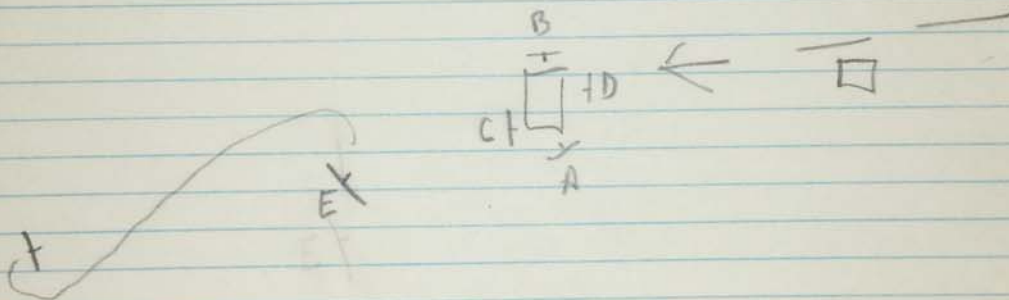 B
D
C
A
E